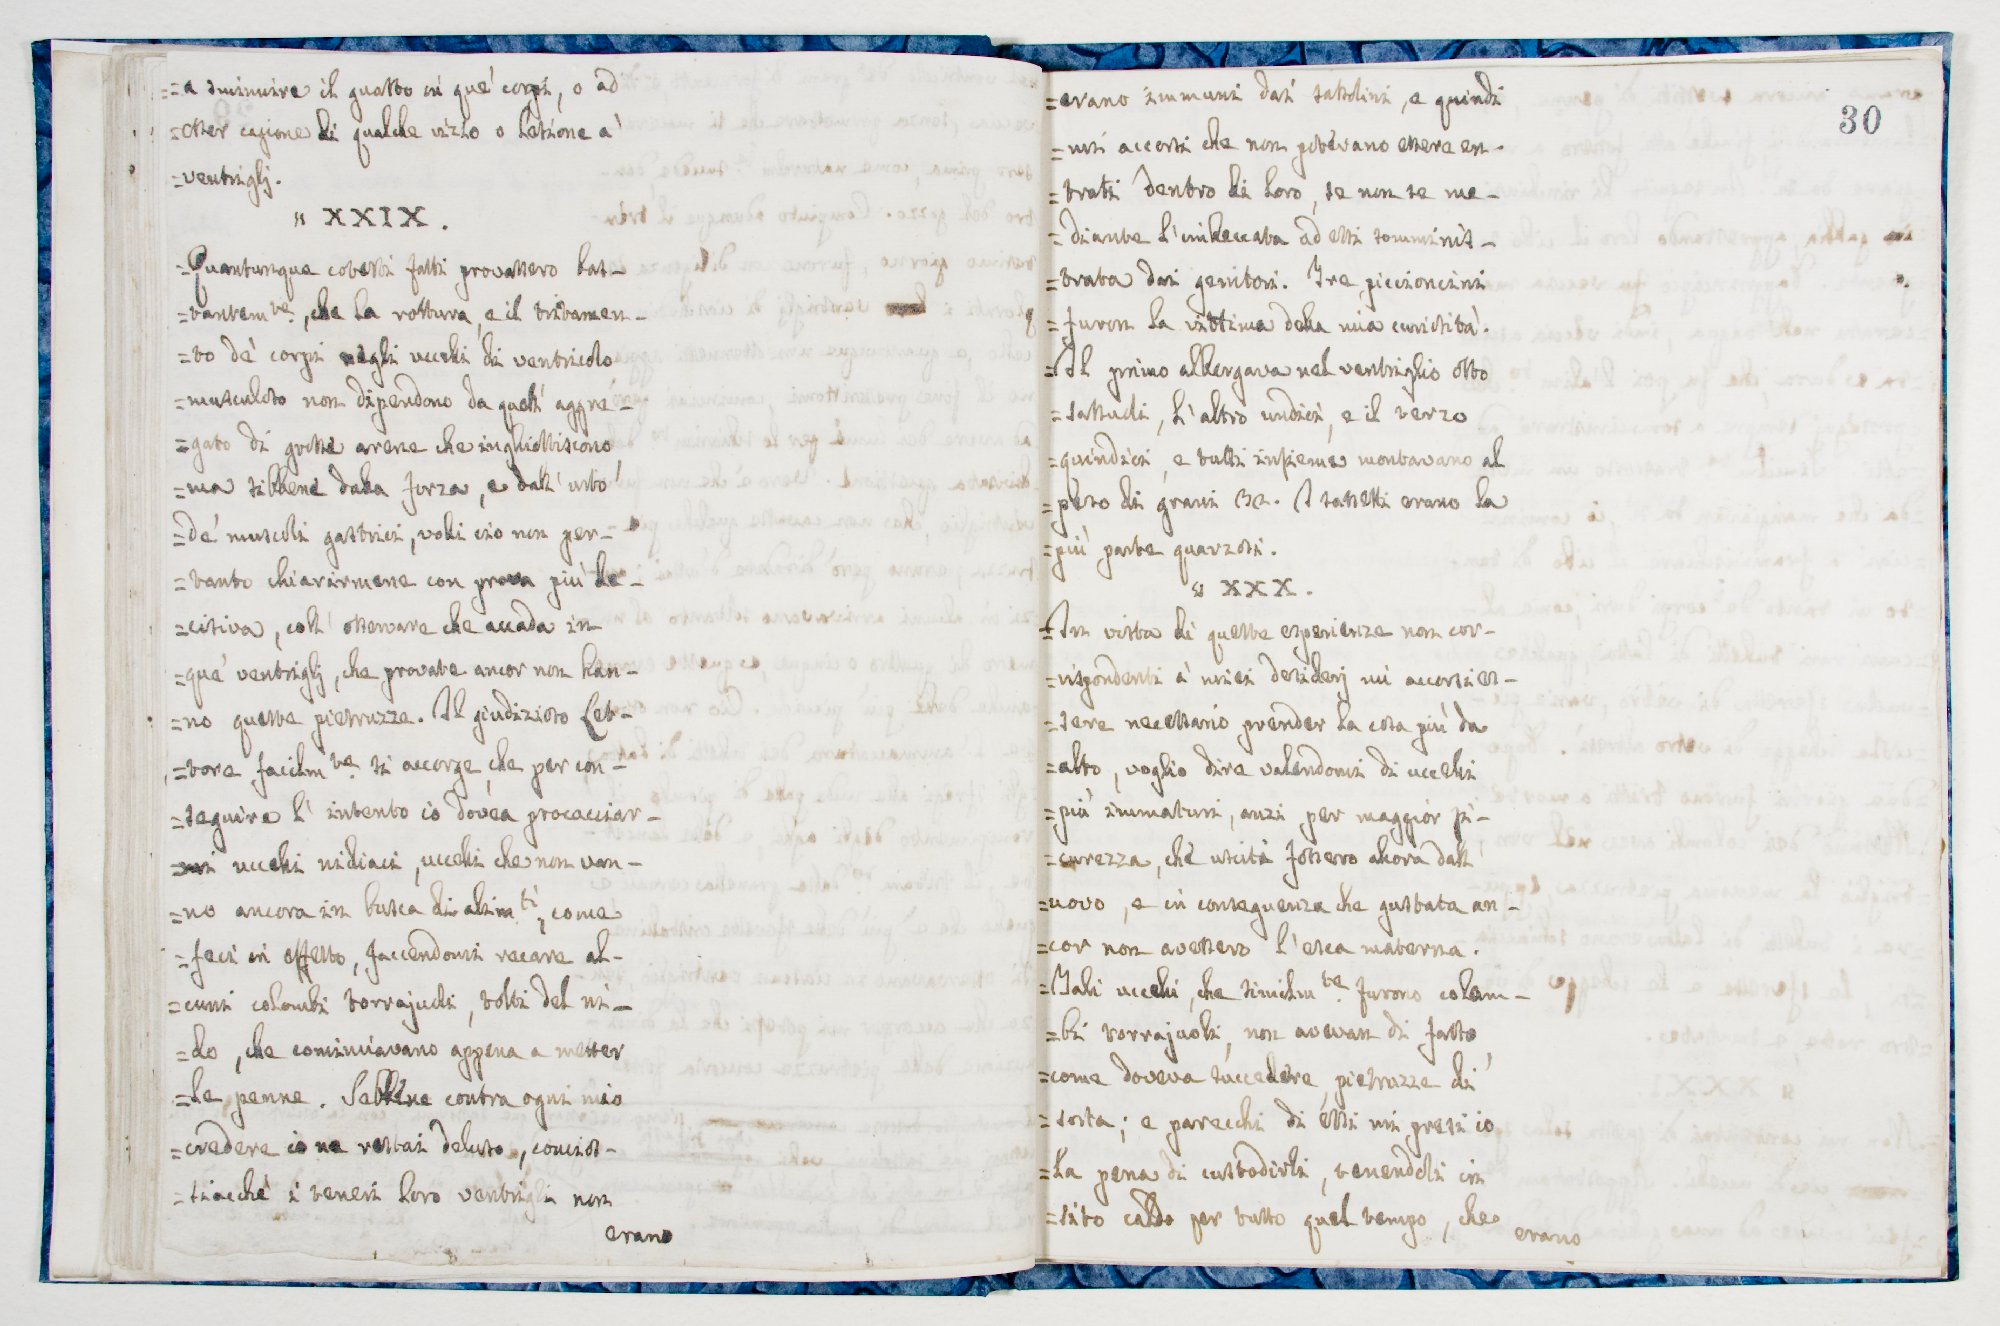 = a sminuire il guasto in que' corpi, o ad
= esser cagione di qualche vizio o lesione a'
= ventriglj.
" XXIX.
= Quantunque cotesti fatti provassero bas-
= tantem.te, che la rottura, e il tritamen-
= to de' corpi negli uccelli di ventricolo
= musculoso non dipendono da quest' aggre-
= gato di grosse arene che inghiottiscono
= ma sibbene dalla forza, e dall' urto
= de' muscoli gastrici, volli cio non per-
= tanto chiarirmene con prova più de-
= cisiva, coll' osservare che accada in
= que' ventriglj, che provate ancor non han-
= no queste pietruzze. Il giudizioso Let-
= tore facilm.te si accorge, che per con-
= seguire l' intento io dovea procacciar-
= mi uccelli nidiaci, uccelli che non van-
= no ancora in busca di alim.ti, come
= feci in effetto, faccendomi recare al-
= cuni colombi torrajuoli, tolti del ni-
= do, che cominciavano appena a metter
= le penne. Sebbene contra ogni mio
= credere io ne restai deluso, concios-
= siacchè i teneri loro ventrigli non
erano
30
= erano immuni dai sassolini, e quindi
= m'accorsi che non potevano essere en-
= trati dentro di loro, se non se me-
= diante l'imbeccata ad essi somminis-
= trata dai genitori. Tre piccioncini
= furon la vittima della mia curiosità.
= Il primo albergava nel ventriglio otto
= sassuoli, l'altro undici, e il terzo
= quindici, e tutti insieme montavano al
= peso di grani 32. I sassetti erano la
= più parte quarzosi.
" XXX.
= In vista di queste esperienze non cor-
= rispondenti a' miei desiderj mi accorsi es-
= sere necessario prender la cosa più da
= alto, voglio dire valendomi di uccelli
= più immaturi, anzi per maggior si-
= curezza, che usciti fossero allora dall'
= uovo, e in conseguenza che gustata an-
= cor non avessero l'esca materna.
= Tali uccelli, che similm.te furono colom-
= bi torrajuoli, non avevan di fatto
= come doveva succedere, pietruzze di
= sorta; e parecchi di essi mi presi io
= la pena di custodirli, tenendoli in
= sito caldo per tutto quel tempo, che
erano